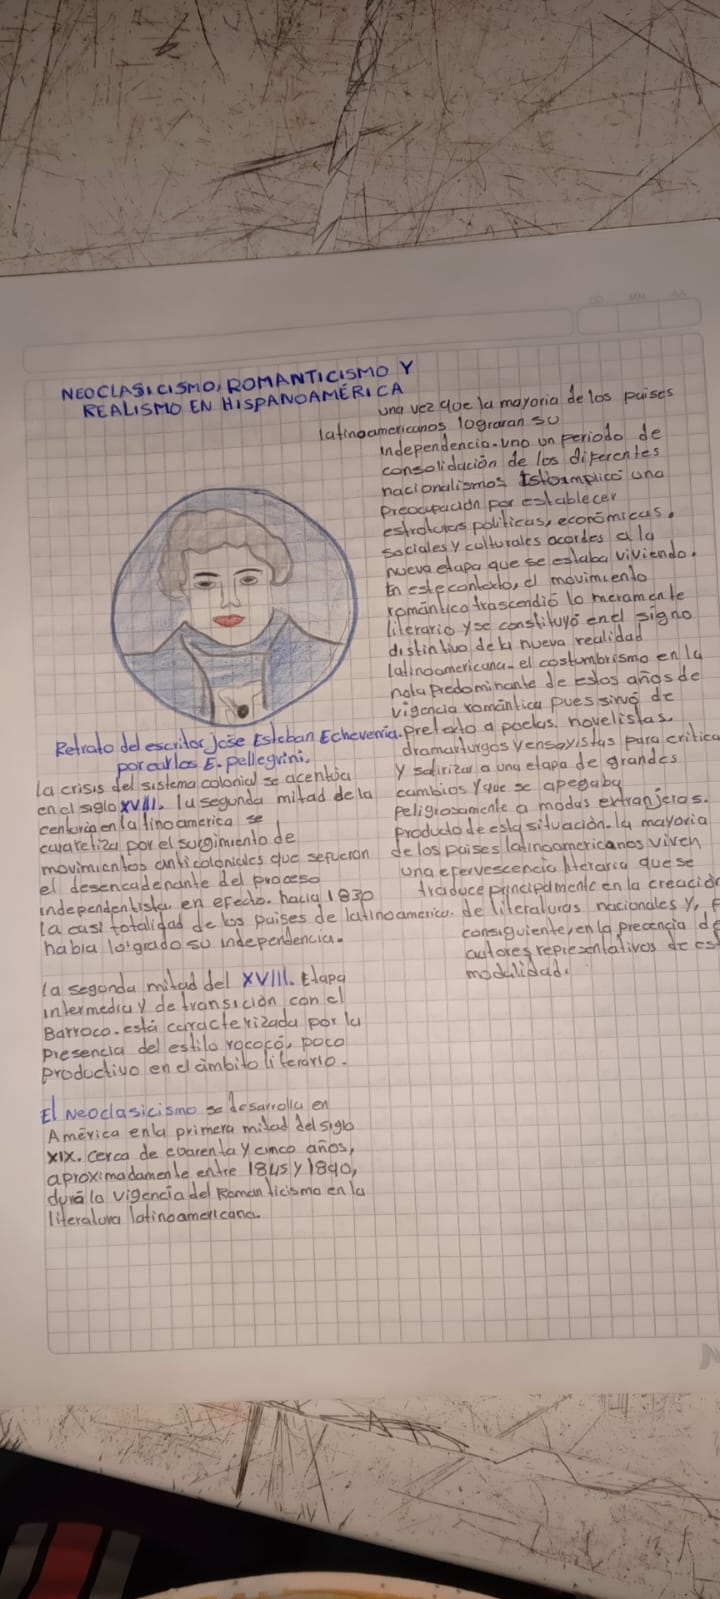 DD MM AA
NEOCLASICISMO, ROMANTICISMO Y
REALISMO EN HISPANOAMÉRICA
Retrato del escritor Jose Esteban Echeverria.
por carlos E. Pellegrini.
la crisis del sistema colonial se acentúa
en el siglo XVIII. la segunda mitad de la
centuria en latinoamerica se
caracteliza por el surgimiento de
movimientos anticoloniales que sefueron
el desencadenante del proceso
independentista. en efecto. hacia 1830
la casi totalidad de los paises de latinoamerica.
habia lo'grado su independencia.
la segonda mitad del XVIII. Etapa
intermedia y de transición con el
Barroco. está caracterizada por la
presencia del estilo rococó, poco
productivo en el ámbito literario.
El Neoclasicismo se desarrolla en
América en la primera mitad del siglo
XIX. cerca de cuarenta y cinco años,
aproximadamente entre 1845 y 1890,
dura la vigencia del Romanticismo en la
literatura latinoamericana.
una vez que la mayoria de los paises
latinoamericanos lograran su
independencia-uno un periodo de
consolidación de los diferentes
nacionalismos Estoimplicó una
preocupación por establecer
estroturas politicas, económicas,
sociales y culturales acordes a la
nueva etapa que se estaba viviendo.
En este contexto, el movimiento
romántico trascendió lo meramente
literario y se constituyó en el signo
distintivo de la nueva realidad
latinoamericana- el costumbrismo en la
nota predominante de estos años de
vigencia romántica pues sirvió de
pretexto a poetas. novelistas.
dramarturgos y ensayistas para critica
y satirizar a una etapa de grandes
cambios y que se apegaba
peligrosamente a modas extranjeras.
producto de esta situación. la mayoria
de los paises latinoamericanos viven
una efervescencia literaria que se
traduce principalmente en la creación
de literaturas nacionales y, p
consiguiente, en la precencia de
autores representativos de est
modalidad.